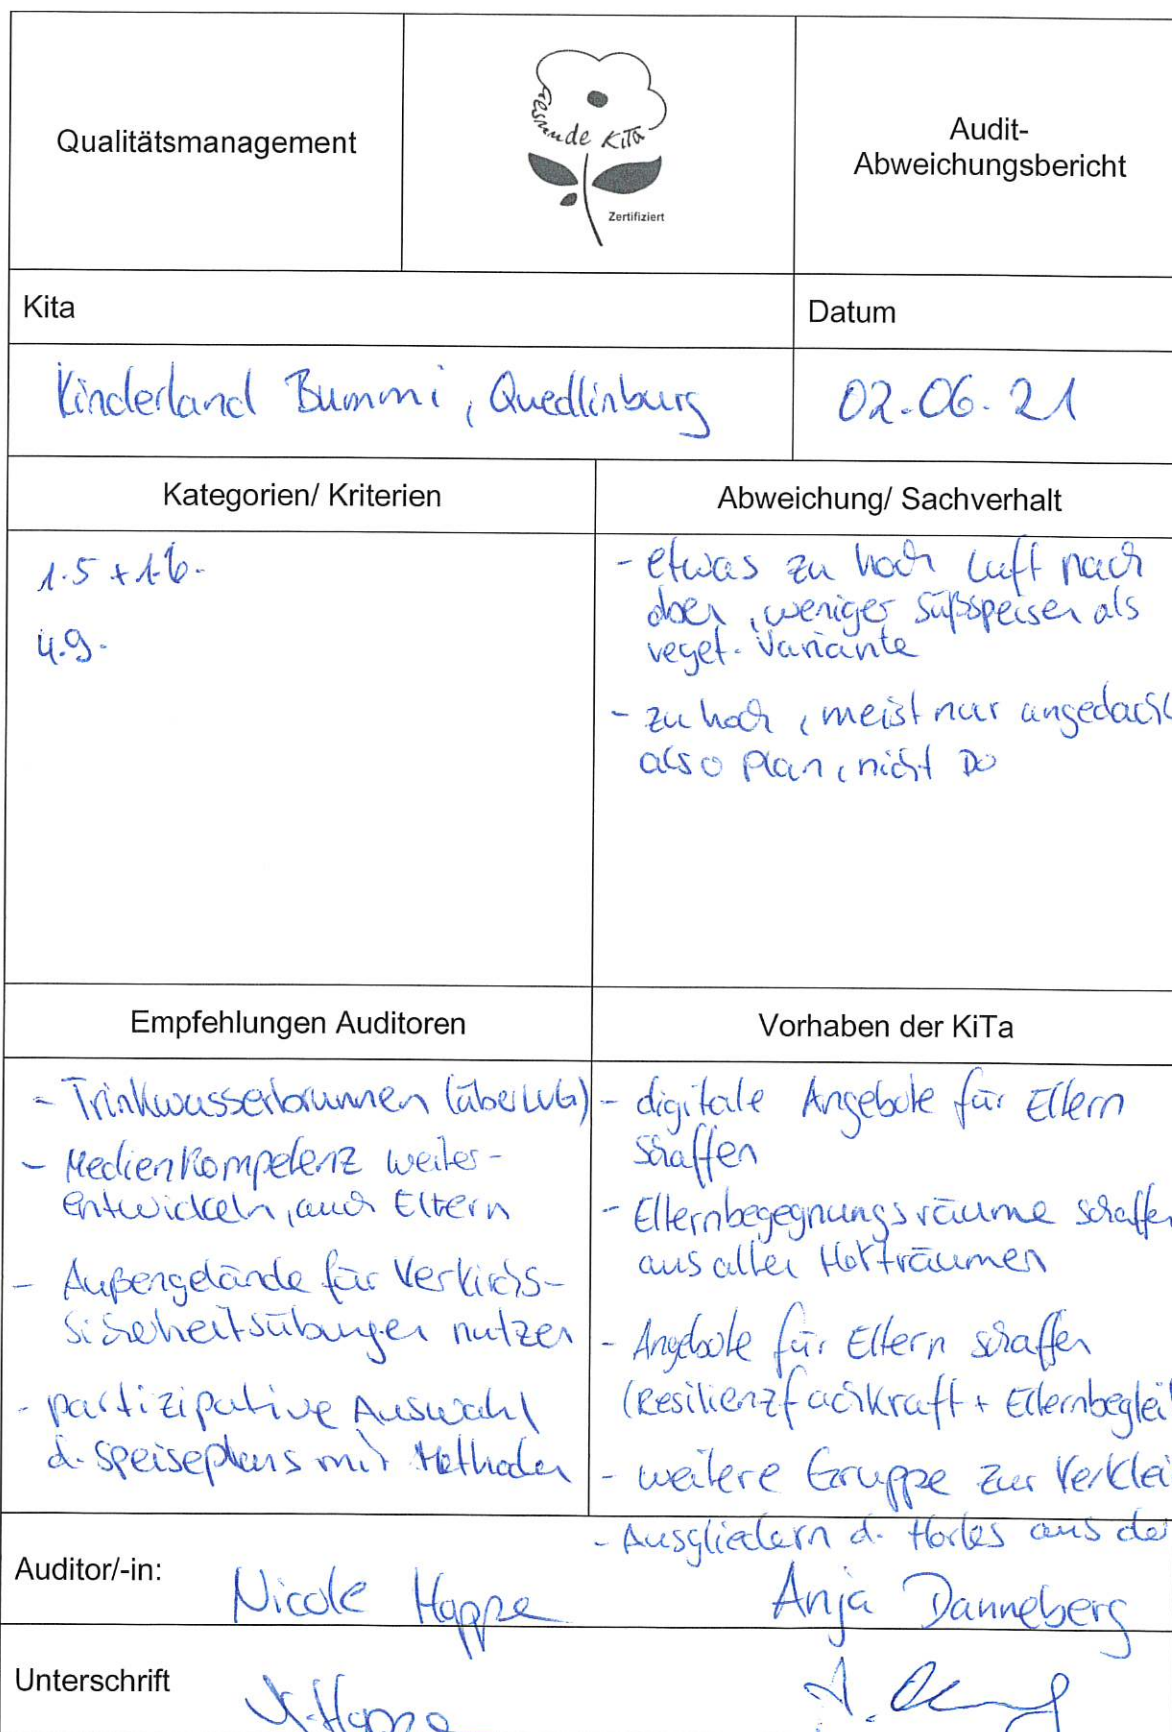 Qualitätsmanagement
Gesunde KiTa
Zertifiziert
Audit-
Abweichungsbericht
Kita
Datum
Kinderland Bummi, Quedlinburg
02.06.21
Kategorien/ Kriterien
Abweichung/ Sachverhalt
1.5 + 1.6.
4.9.
- etwas zu hoch Luft nach
oben, weniger Süßspeisen als
veget. Variante
- zu hoch, meist nur angedacht
also Plan, nicht Do
Empfehlungen Auditoren
Vorhaben der KiTa
- Trinkwasserbrunnen (über LVG)
- Medienkompetenz weiter-
entwickeln, auch Eltern
- Außengelände für Verkehrs-
sicherheitsübungen nutzen
- partizipative Auswahl
d. Speiseplans mit Methoden
- digitale Angebote für Eltern
schaffen
- Elternbegegnungsräume schaffen
aus alten Horträumen
- Angebote für Eltern schaffen
(Resilienzfachkraft + Elternbeglei
- weitere Gruppe zur Verklei
- Ausgliedern d. Hortes aus de
Auditor/-in:
Nicole Happe
Anja Danneberg
Unterschrift
N. Happe